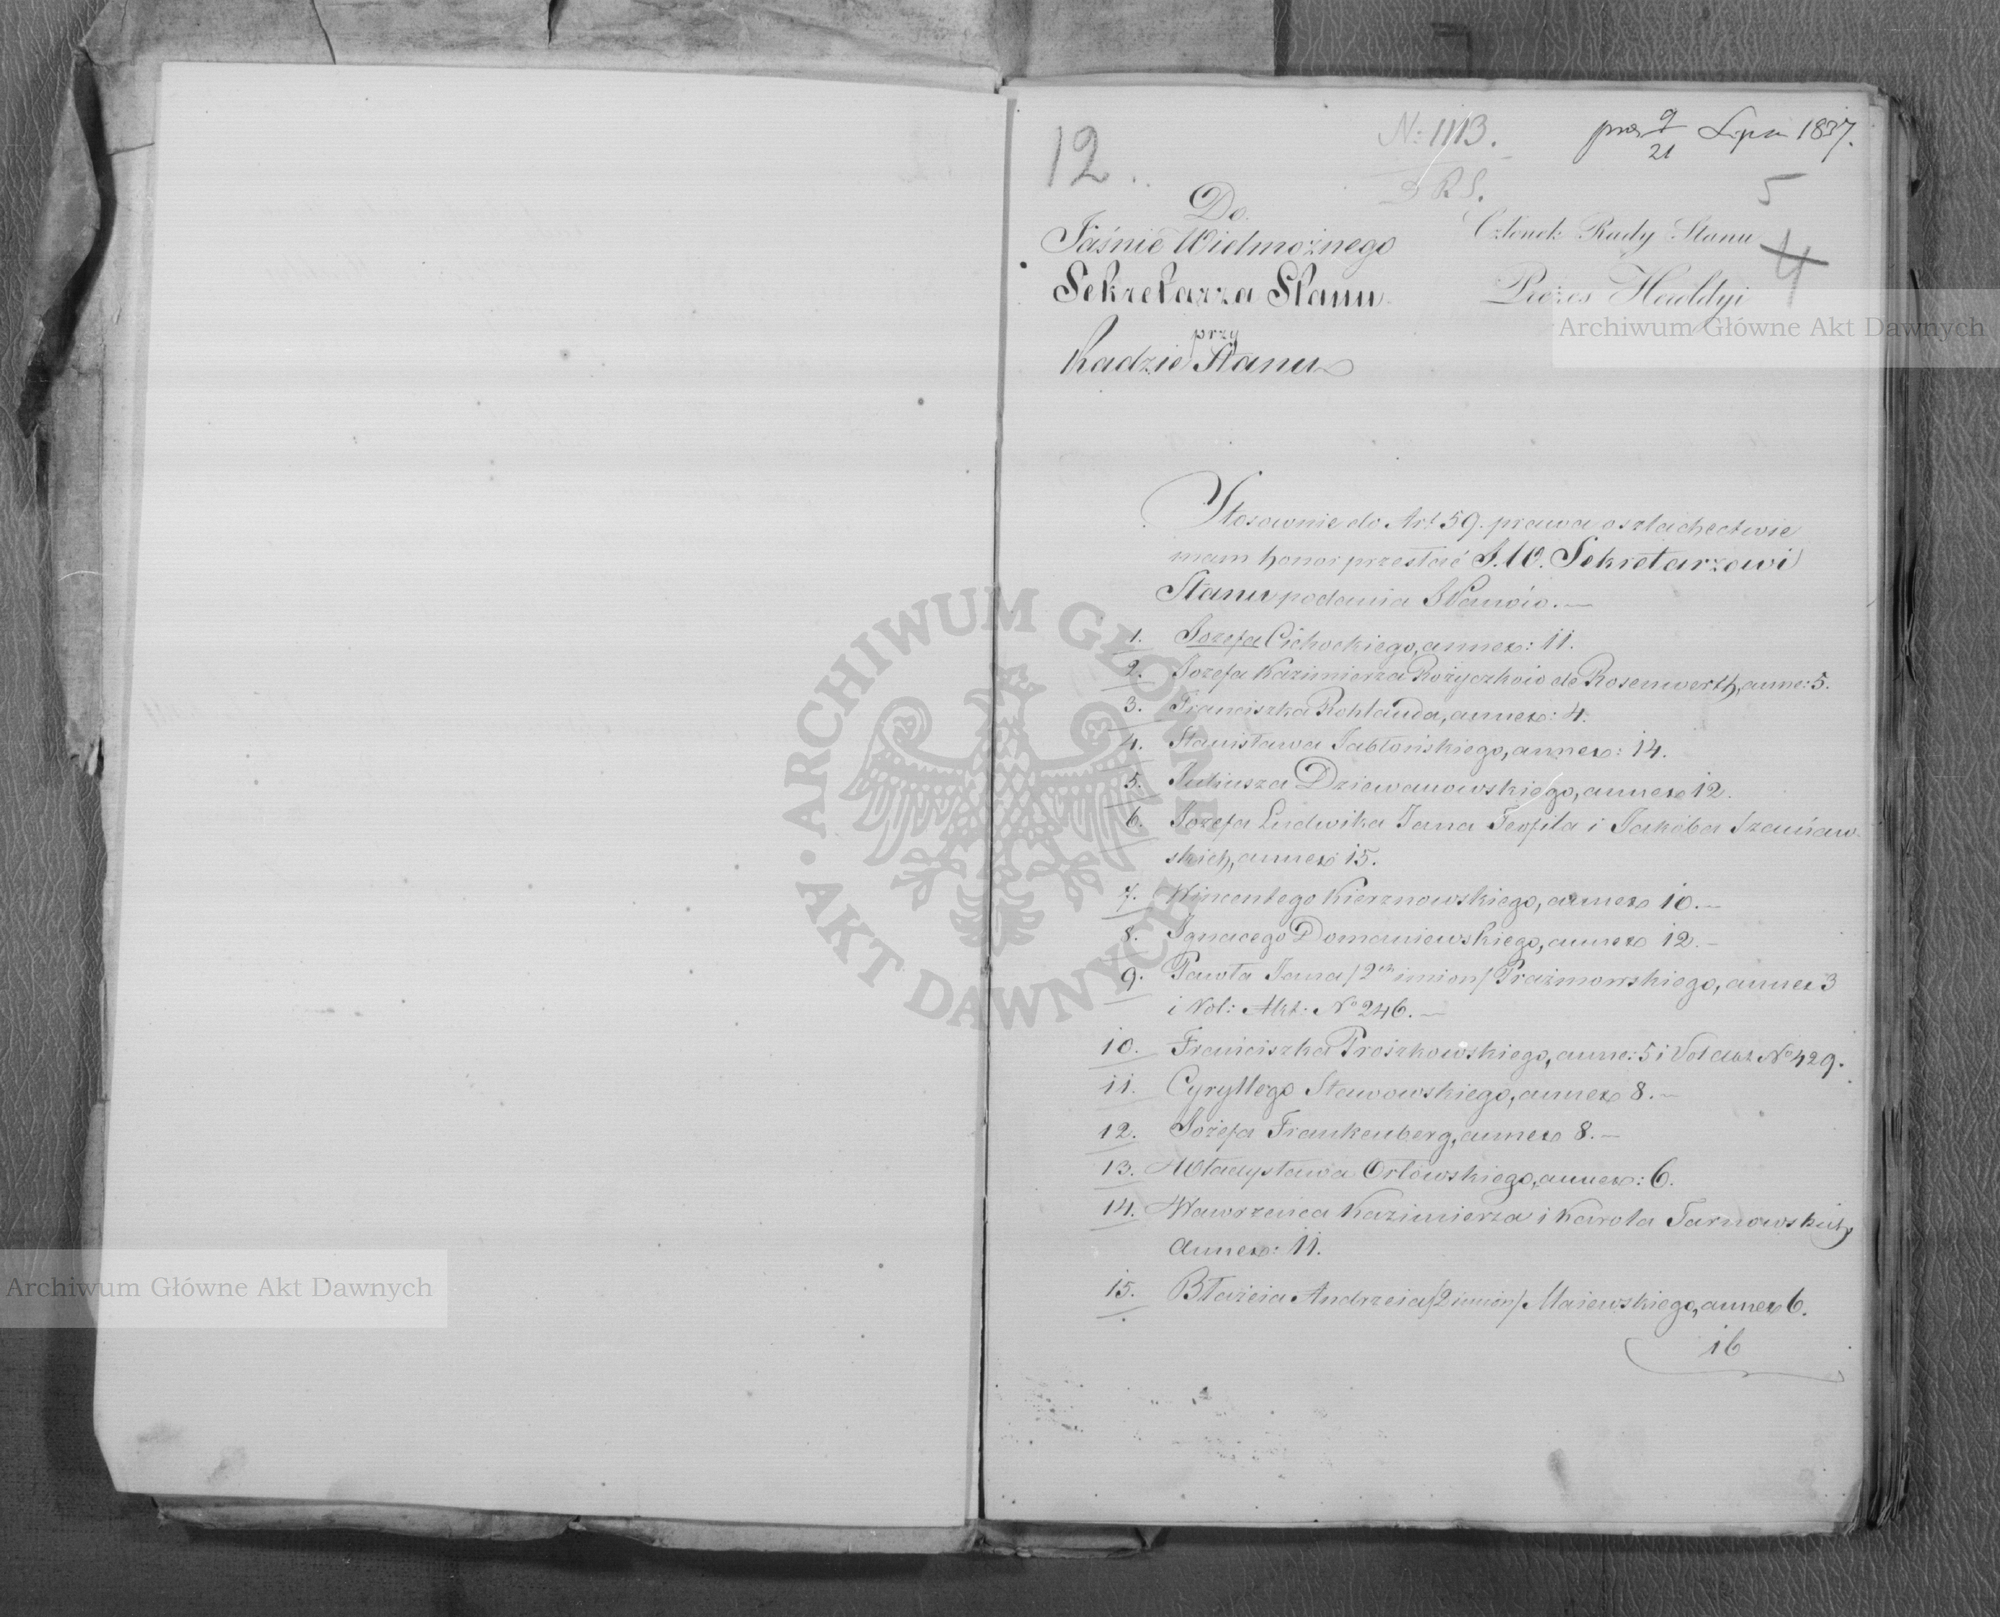 12.
N: 1113.
R S.
prez 9/21 Lipca 1837.
5
4
Do
Jaśnie Wielmożnego
Sekretarza Stanu
przy
Radzie Stanu
Członek Rady Stanu
Prezes Heroldyi
Stosownie do Art 59. prawa o szlachectwie
mam honor przesłać J.W. Sekretarzowi
Stanu podania Panów.—
1. Jozefa Cichockiego, annex: 11.
2. Jozefa Kazimierza Rożyczków de Rosenwerth, anne: 5.
3. Franciszka Rohlanda, annex: 4.
4. Stanisława Jabłońskiego, annex: 14.
5. Juliusza Dziewanowskiego, annex 12.
6. Jozefa Ludwika Jana Teofila i Jakóba Szaniaw-
skich, annex 15.
7. Wincentego Kierznowskiego, annex 10.—
8. Ignacego Domaniewskiego, annex 12.—
9. Pawła Jana /2ch imion/ Prażmowskiego, annex 3
i Vol: Akt: No 246.—
10. Franciszka Proszkowskiego, anne: 5 i Vol akt No 429.
11. Cyryllego Stawowskiego, annex 8.—
12. Józefa Frankenberg, annex 8.—
13. Władysława Orłowskiego, annex: 6.
14. Wawrzenca Kazimierza i Karola Tarnowskich,
annex: 11.
15. Błażeia Andrzeia /2 imion/ Maiewskiego, annex 6.
16
Archiwum Główne Akt Dawnych
Archiwum Główne Akt Dawnych
ARCHIWUM GŁÓWNE • AKT DAWNYCH •